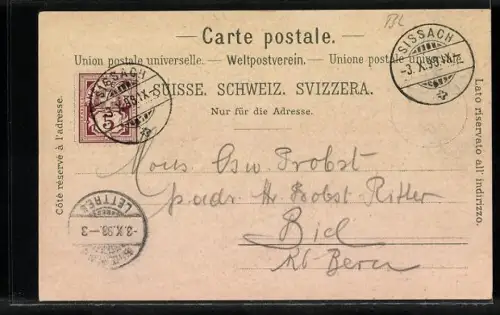 BL
Carte postale.
Union postale universelle. — Weltpostverein. — Unione postale universale.
SUISSE. SCHWEIZ. SVIZZERA.
Nur für die Adresse.
SISSACH
-3.X.98.IX-
SISSACH
98.IX-
5
Côté réservé à l'adresse.
Lato riservato all' indirizzo.
Mons. Osw Probst
padr H Probst Ritter
Biel
Kt Bern
LETTRES
-3.X.98.-3